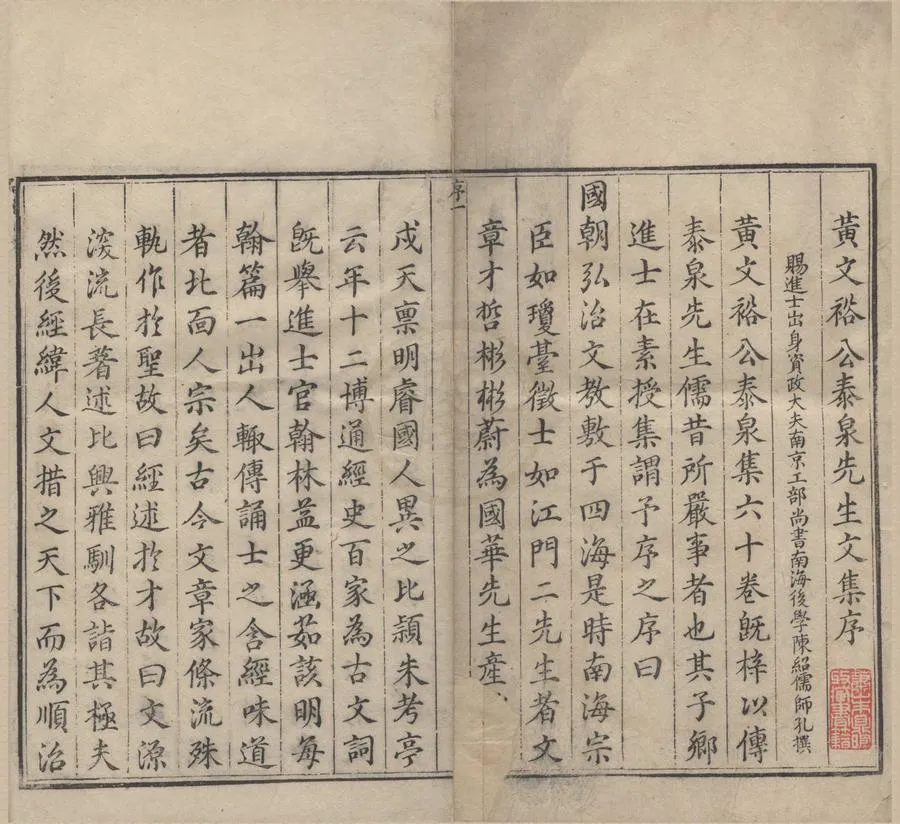 黃文裕公泰泉先生文集序
賜進士出身資政大夫南京工部尚書南海後學陳紹儒師孔撰
黃文裕公泰泉集六十卷旣梓以傳
泰泉先生儒昔所嚴事者也其子鄉
進士在素授集謂予序之序曰
國朝弘治文教敷于四海是時南海宗
臣如瓊臺徵士如江門二先生者文
章才哲彬彬蔚為國華先生產
序一
戍天稟明睿國人異之比頴朱考亭
云年十二博通經史百家為古文詞
旣舉進士官翰林益更涵茹該明每
翰篇一出人輙傳誦士之含經味道
者北面人宗矣古今文章家條流殊
軌作扵聖故曰經述扵才故曰文源
深流長著述比興雅馴各詣其極夫
然後經緯人文措之天下而為順治